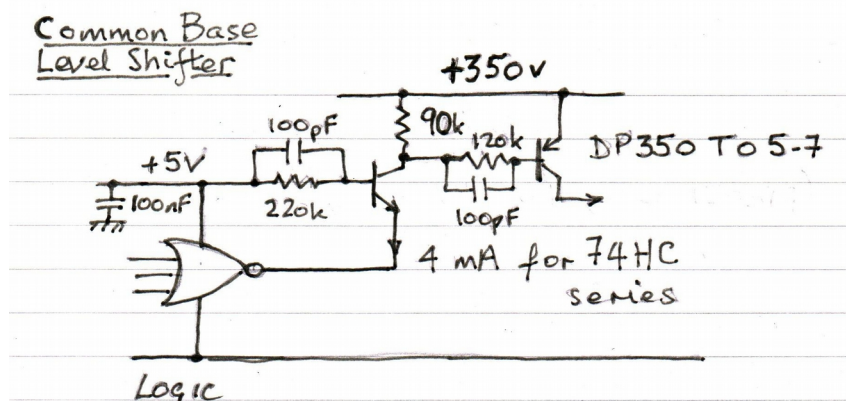 Common Base
Level Shifter
+350v
100pF
90k
120k
DP350 TO 5-7
+5V
100nF
220k
100pF
4 mA for 74HC
series
LOGIC